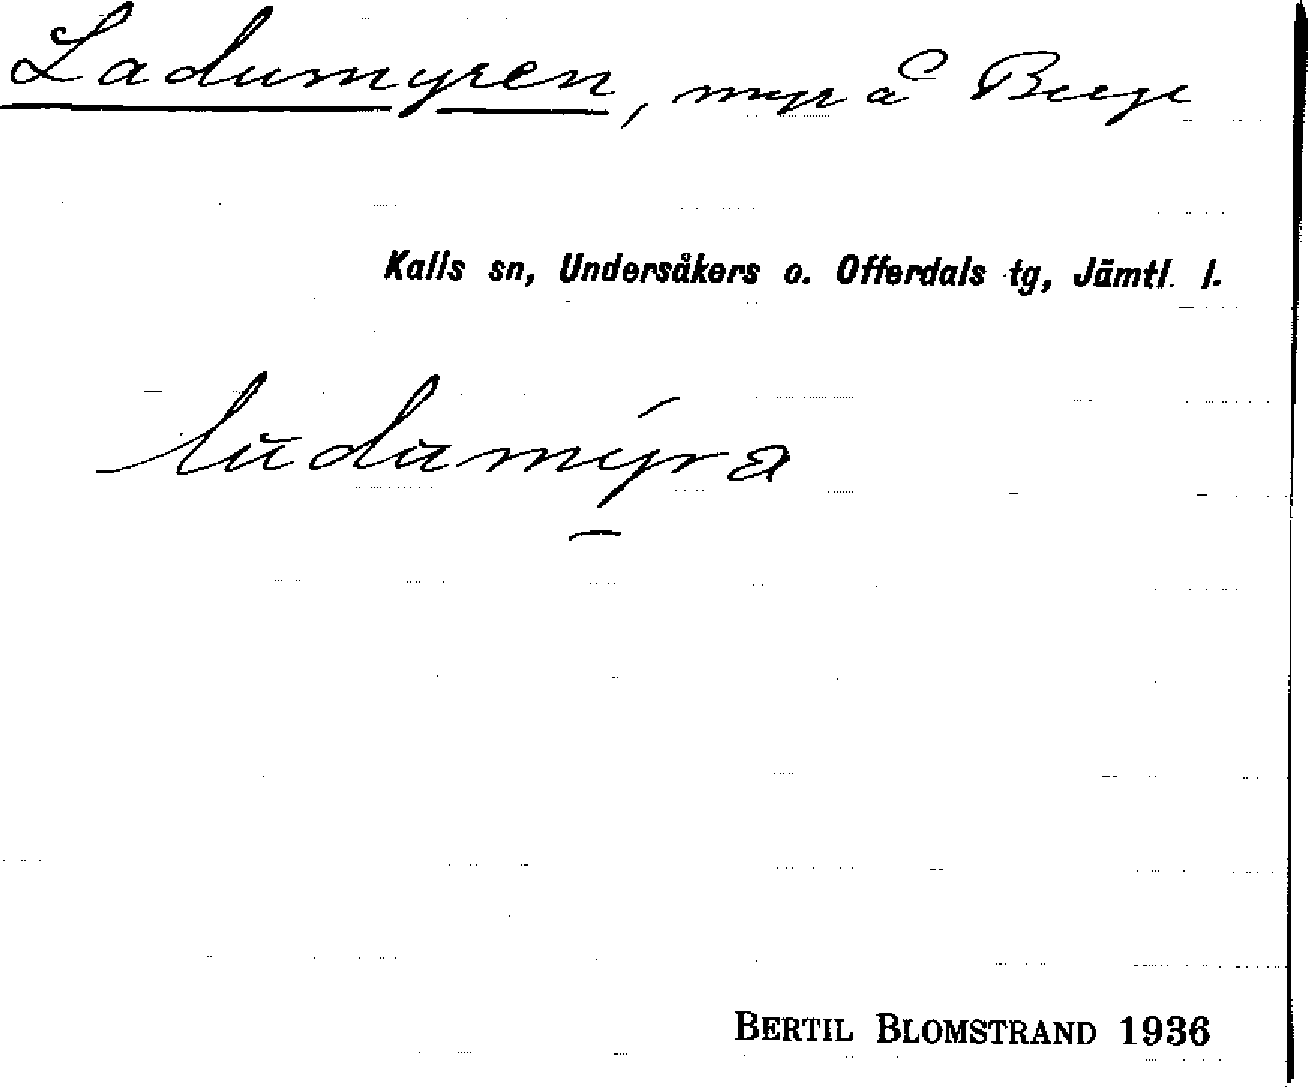 Ladumyren, myr å Berge
Kalls sn, Undersåkers o. Offerdals tg, Jämtl. l.
BERTIL BLOMSTRAND 1936